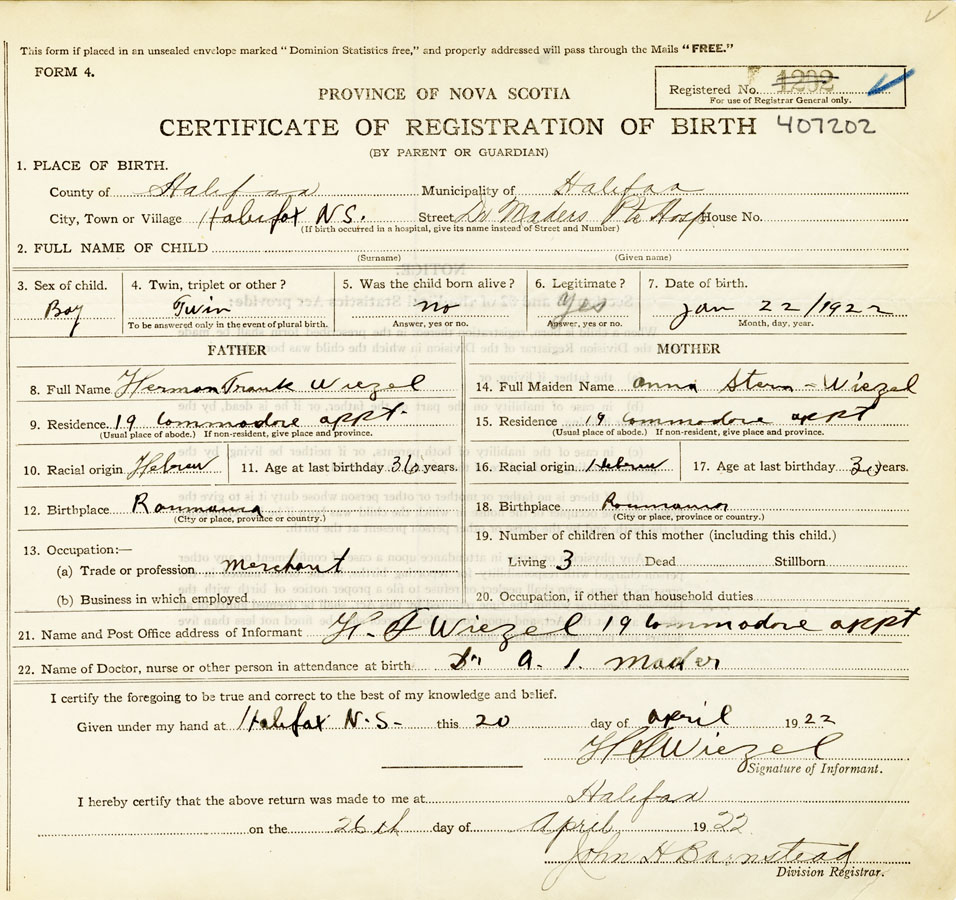 This form if placed in an unsealed envelope marked "Dominion Statistics free," and properly addressed will pass through the Mails "FREE."
FORM 4.
Registered No. 1202
For use of Registrar General only.
PROVINCE OF NOVA SCOTIA
CERTIFICATE OF REGISTRATION OF BIRTH 407202
(BY PARENT OR GUARDIAN)
1. PLACE OF BIRTH.
County of Halifax Municipality of Halifax
City, Town or Village Halifax N.S. Street Dr Maders Pte Hosp. House No.
(If birth occurred in a hospital, give its name instead of Street and Number)
2. FULL NAME OF CHILD
(Surname) (Given name)
3. Sex of child. 4. Twin, triplet or other? 5. Was the child born alive? 6. Legitimate? 7. Date of birth.
Boy Twin no Yes Jan 22/1922
To be answered only in the event of plural birth. Answer, yes or no. Answer, yes or no. Month, day, year.
FATHER MOTHER
8. Full Name Herman Frank Wiezel 14. Full Maiden Name Anna Stern - Wiezel
9. Residence. 19 Commodore appt. 15. Residence 19 Commodore appt
(Usual place of abode.) If non-resident, give place and province. (Usual place of abode.) If non-resident, give place and province.
10. Racial origin Hebrew 11. Age at last birthday 36 years. 16. Racial origin Hebrew 17. Age at last birthday years.
12. Birthplace Roumania 18. Birthplace Roumania
(City or place, province or country.) (City or place, province or country.)
13. Occupation:— 19. Number of children of this mother (including this child.)
(a) Trade or profession merchant Living 3 Dead Stillborn
(b) Business in which employed 20. Occupation, if other than household duties
21. Name and Post Office address of Informant H. F Wiezel 19 Commodore appt
22. Name of Doctor, nurse or other person in attendance at birth Dr A. I. Mader
I certify the foregoing to be true and correct to the best of my knowledge and belief.
Given under my hand at Halifax N.S- this 20 day of april 1922
H F Wiezel
Signature of Informant.
I hereby certify that the above return was made to me at Halifax
on the 26th day of April 1922
John H Barnstead
Division Registrar.